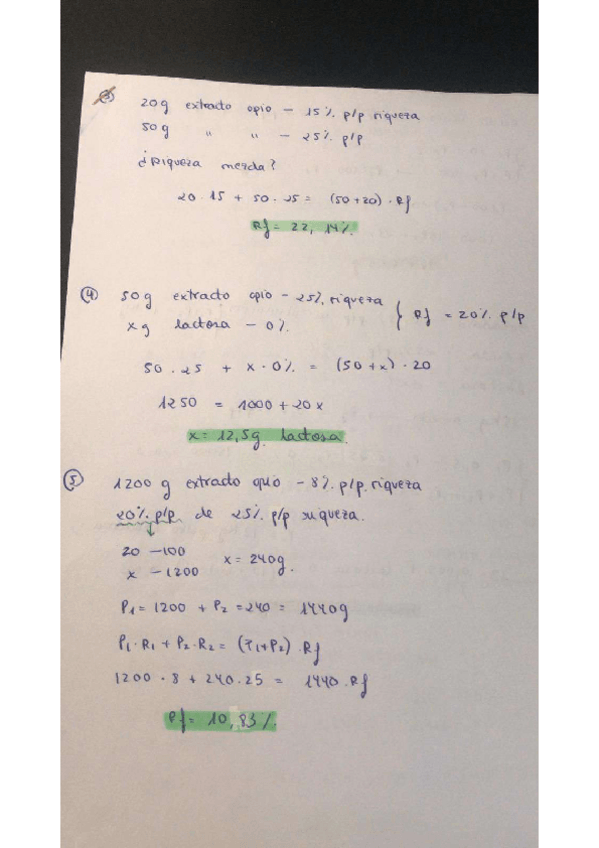 3) 20g extracto opio - 15% p/p riqueza
50g " " - 25% p/p
¿Riqueza mezcla?
20 · 15 + 50 · 25 = (50+20) · Rf
Rf = 22,14%
4) 50g extracto opio - 25% riqueza
x g lactosa - 0% } Rf = 20% p/p
50 · 25 + x · 0% = (50+x) · 20
1250 = 1000 + 20x
x = 12,5g lactosa
5) 1200 g extracto opio - 8% p/p riqueza
20% p/p de 25% p/p riqueza.
20 - 100
x - 1200 x = 240g.
P1 = 1200 + P2 = 240 = 1440g
P1 · R1 + P2 · R2 = (P1+P2) · Rf
1200 · 8 + 240 · 25 = 1440 · Rf
Rf = 10,83%